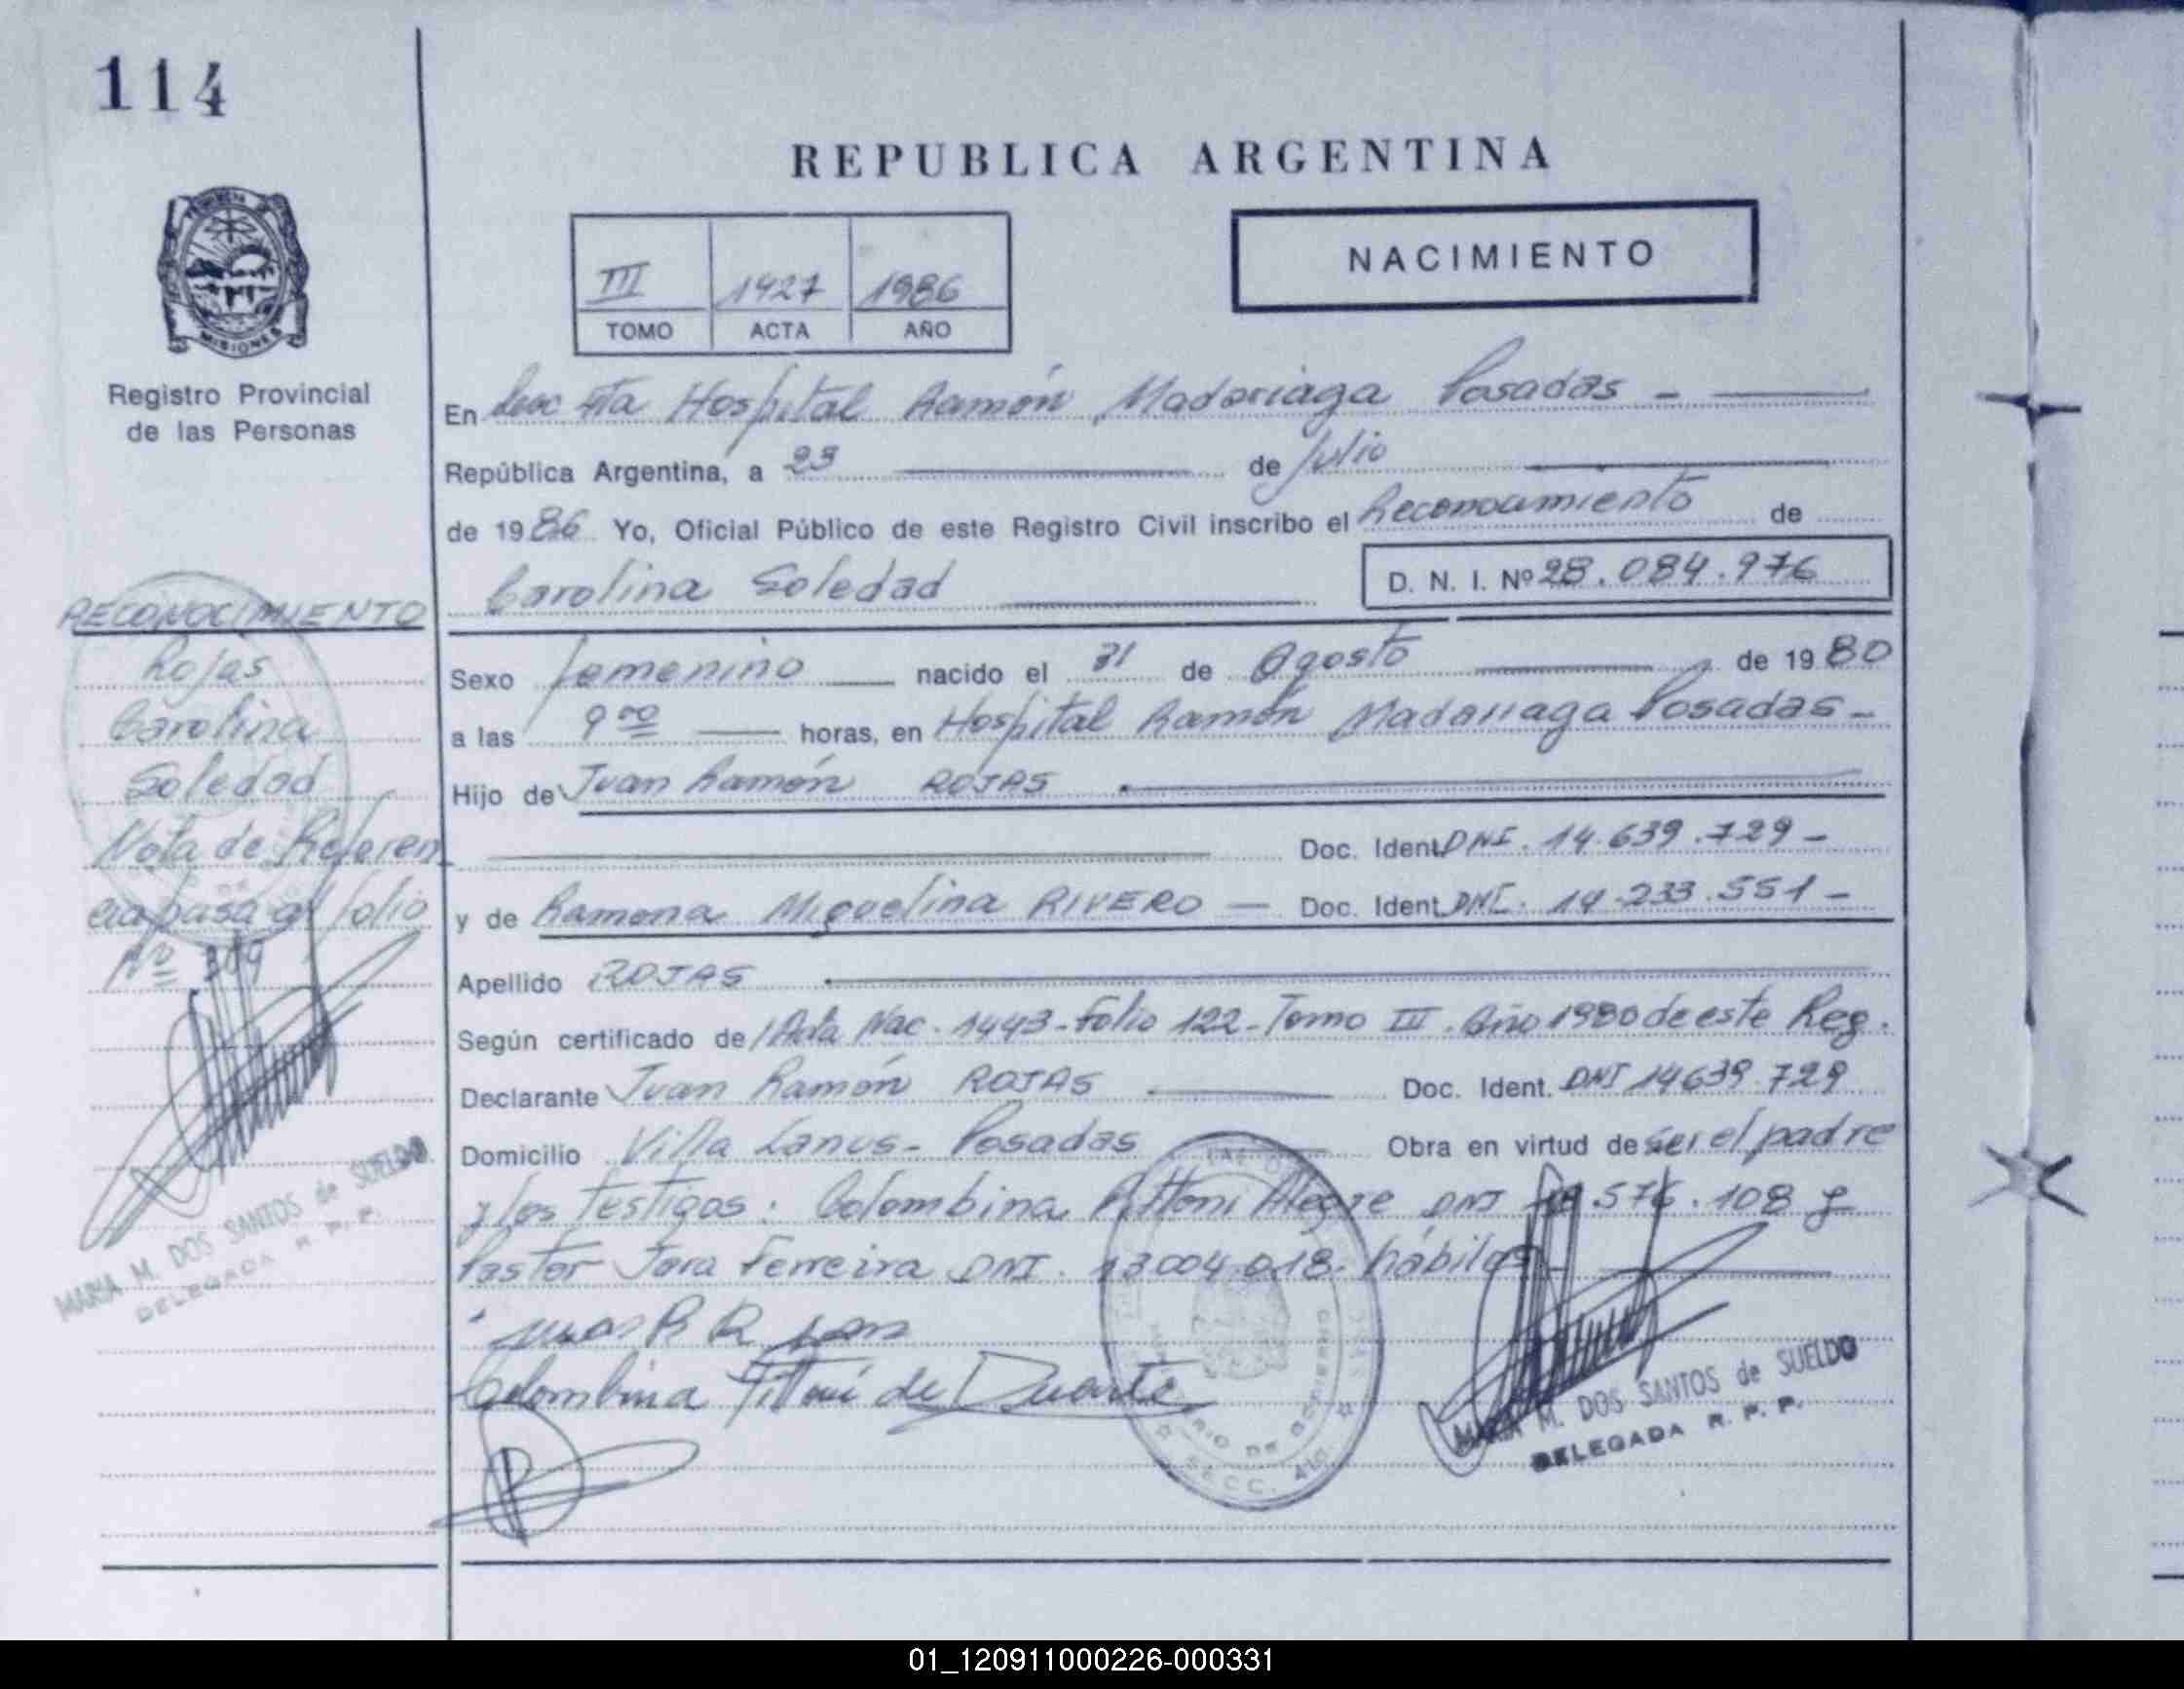 114
REPUBLICA ARGENTINA
NACIMIENTO
III 1427 1986
TOMO ACTA AÑO
PROVINCIA DE
MISIONES
Registro Provincial
de las Personas
En Secc 4ta Hospital Ramón Madariaga Posadas -
República Argentina, a 23 de Julio
de 1986 Yo, Oficial Público de este Registro Civil inscribo el Reconocimiento de
Carolina Soledad D. N. I. Nº 28.084.976
RECONOCIMIENTO
Rojas
Carolina
Soledad
Nota de Referen
cia pasa al folio
Nº 309
MARIA M. DOS SANTOS de SUELDO
DELEGADA R. P. P.
Sexo femenino nacido el 31 de Agosto de 1980
a las 9 00 horas, en Hospital Ramón Madariaga Posadas -
Hijo de Juan Ramón ROJAS
Doc. Ident. DNI. 14.639.729 -
y de Ramona Miguelina RIVERO - Doc. Ident. DNI. 14.233.551 -
Apellido ROJAS
Según certificado de / Acta Nac. 1443 - Folio 122 - Tomo III. Año 1980 de este Reg.
Declarante Juan Ramón ROJAS Doc. Ident. DNI 14639.729
Domicilio Villa Lanus - Posadas Obra en virtud de ser el padre
y los testigos: Colombina Pittoni Alegre DNI .576.108 y
Pastor Jara Ferreira DNI. 13004.018. hábiles -
Colombina Pittoni de Duarte
SECC. 4ta
MARIA M. DOS SANTOS de SUELDO
DELEGADA R. P. P.
01_120911000226-000331